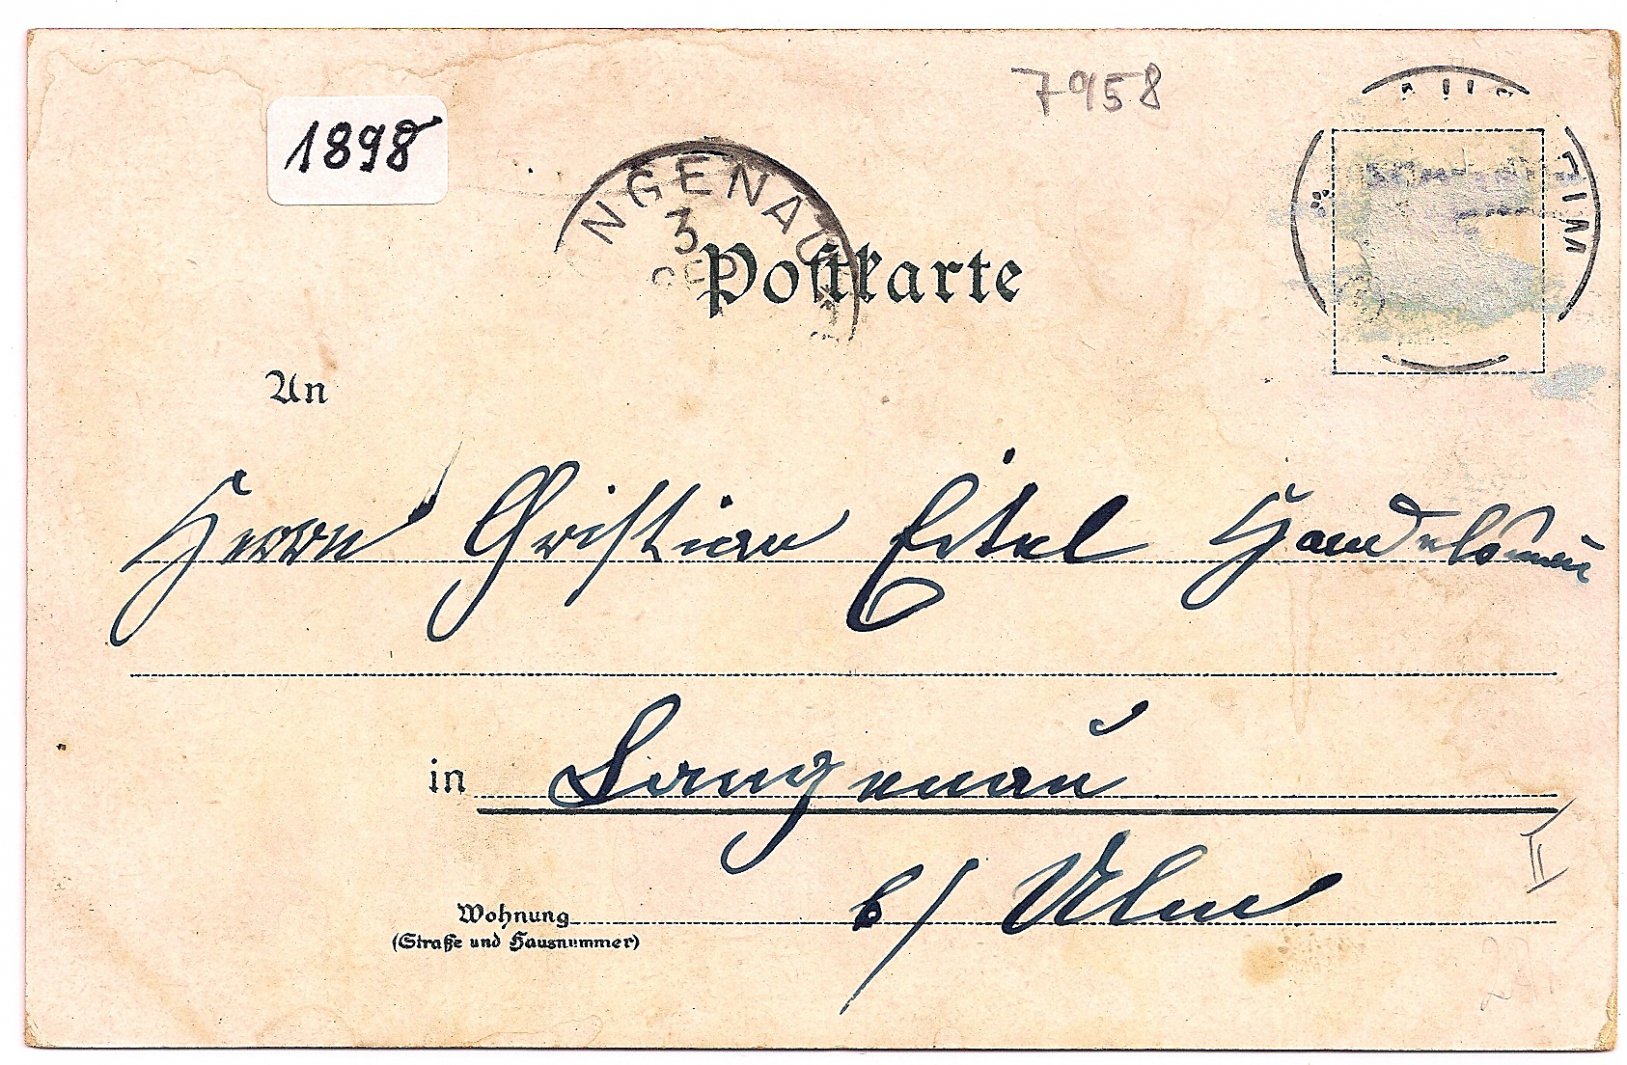 7958
1898
NGENAU
3
SEP
Postkarte
An
Herrn Christian Eitel
in Langenau
b/ Ulm
Wohnung
(Straße und Hausnummer)
II